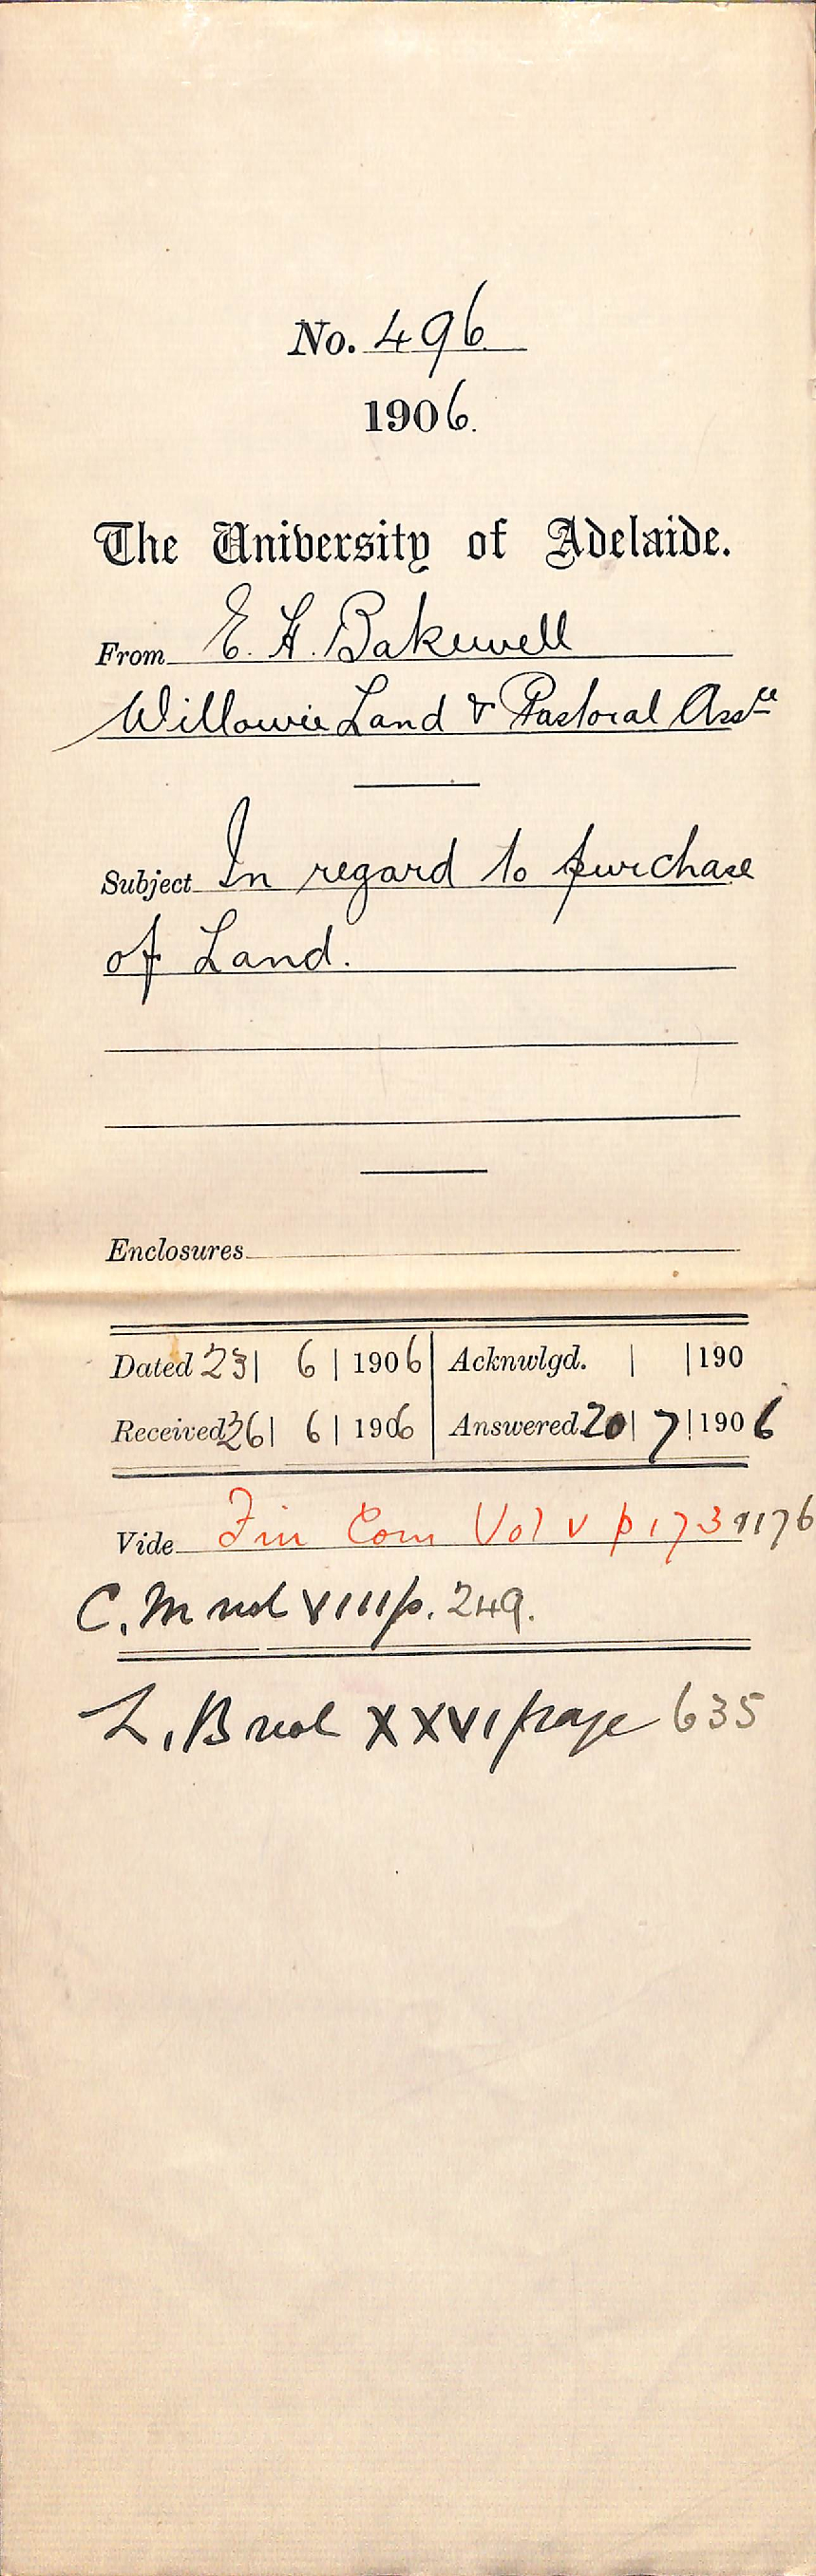 No. 496
1906.
The University of Adelaide.
From E. H. Bakewell
Willowie Land & Pastoral Assce
Subject In regard to purchase
of Land.
Enclosures
Dated 23| 6 | 1906 Acknwlgd. | |190
Received 26| 6 | 1906 Answered 20| 7 |1906
Vide Fin Com Vol V p 173 & 176
C.M vol VIII p. 249.
L.B vol XXVI page 635